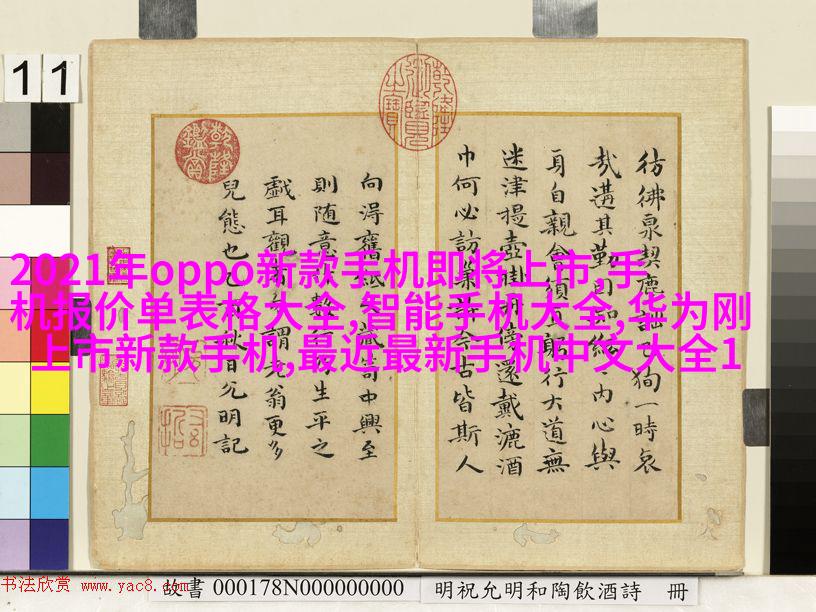 11
2021年oppo新款手机即将上市,手
机报价单表格大全,智能手机大全,华为刚
上市新款手机,最近最新手机中文大全1
彷彿泉契鹿 狗一時哀
哉 其勤 内心與
身自親 躬行大道無
迷津提壺掛 傍還戴漉酒
巾何必訪 今古皆斯人
向得舊紙 藏笥中興至
則随意 數 生平之
戲耳觀 謂允翁更多
兒態也 秋日允明記
书法欣赏 www.yac8.com
故書 000178N000000000
明祝允明和陶飲酒詩 冊